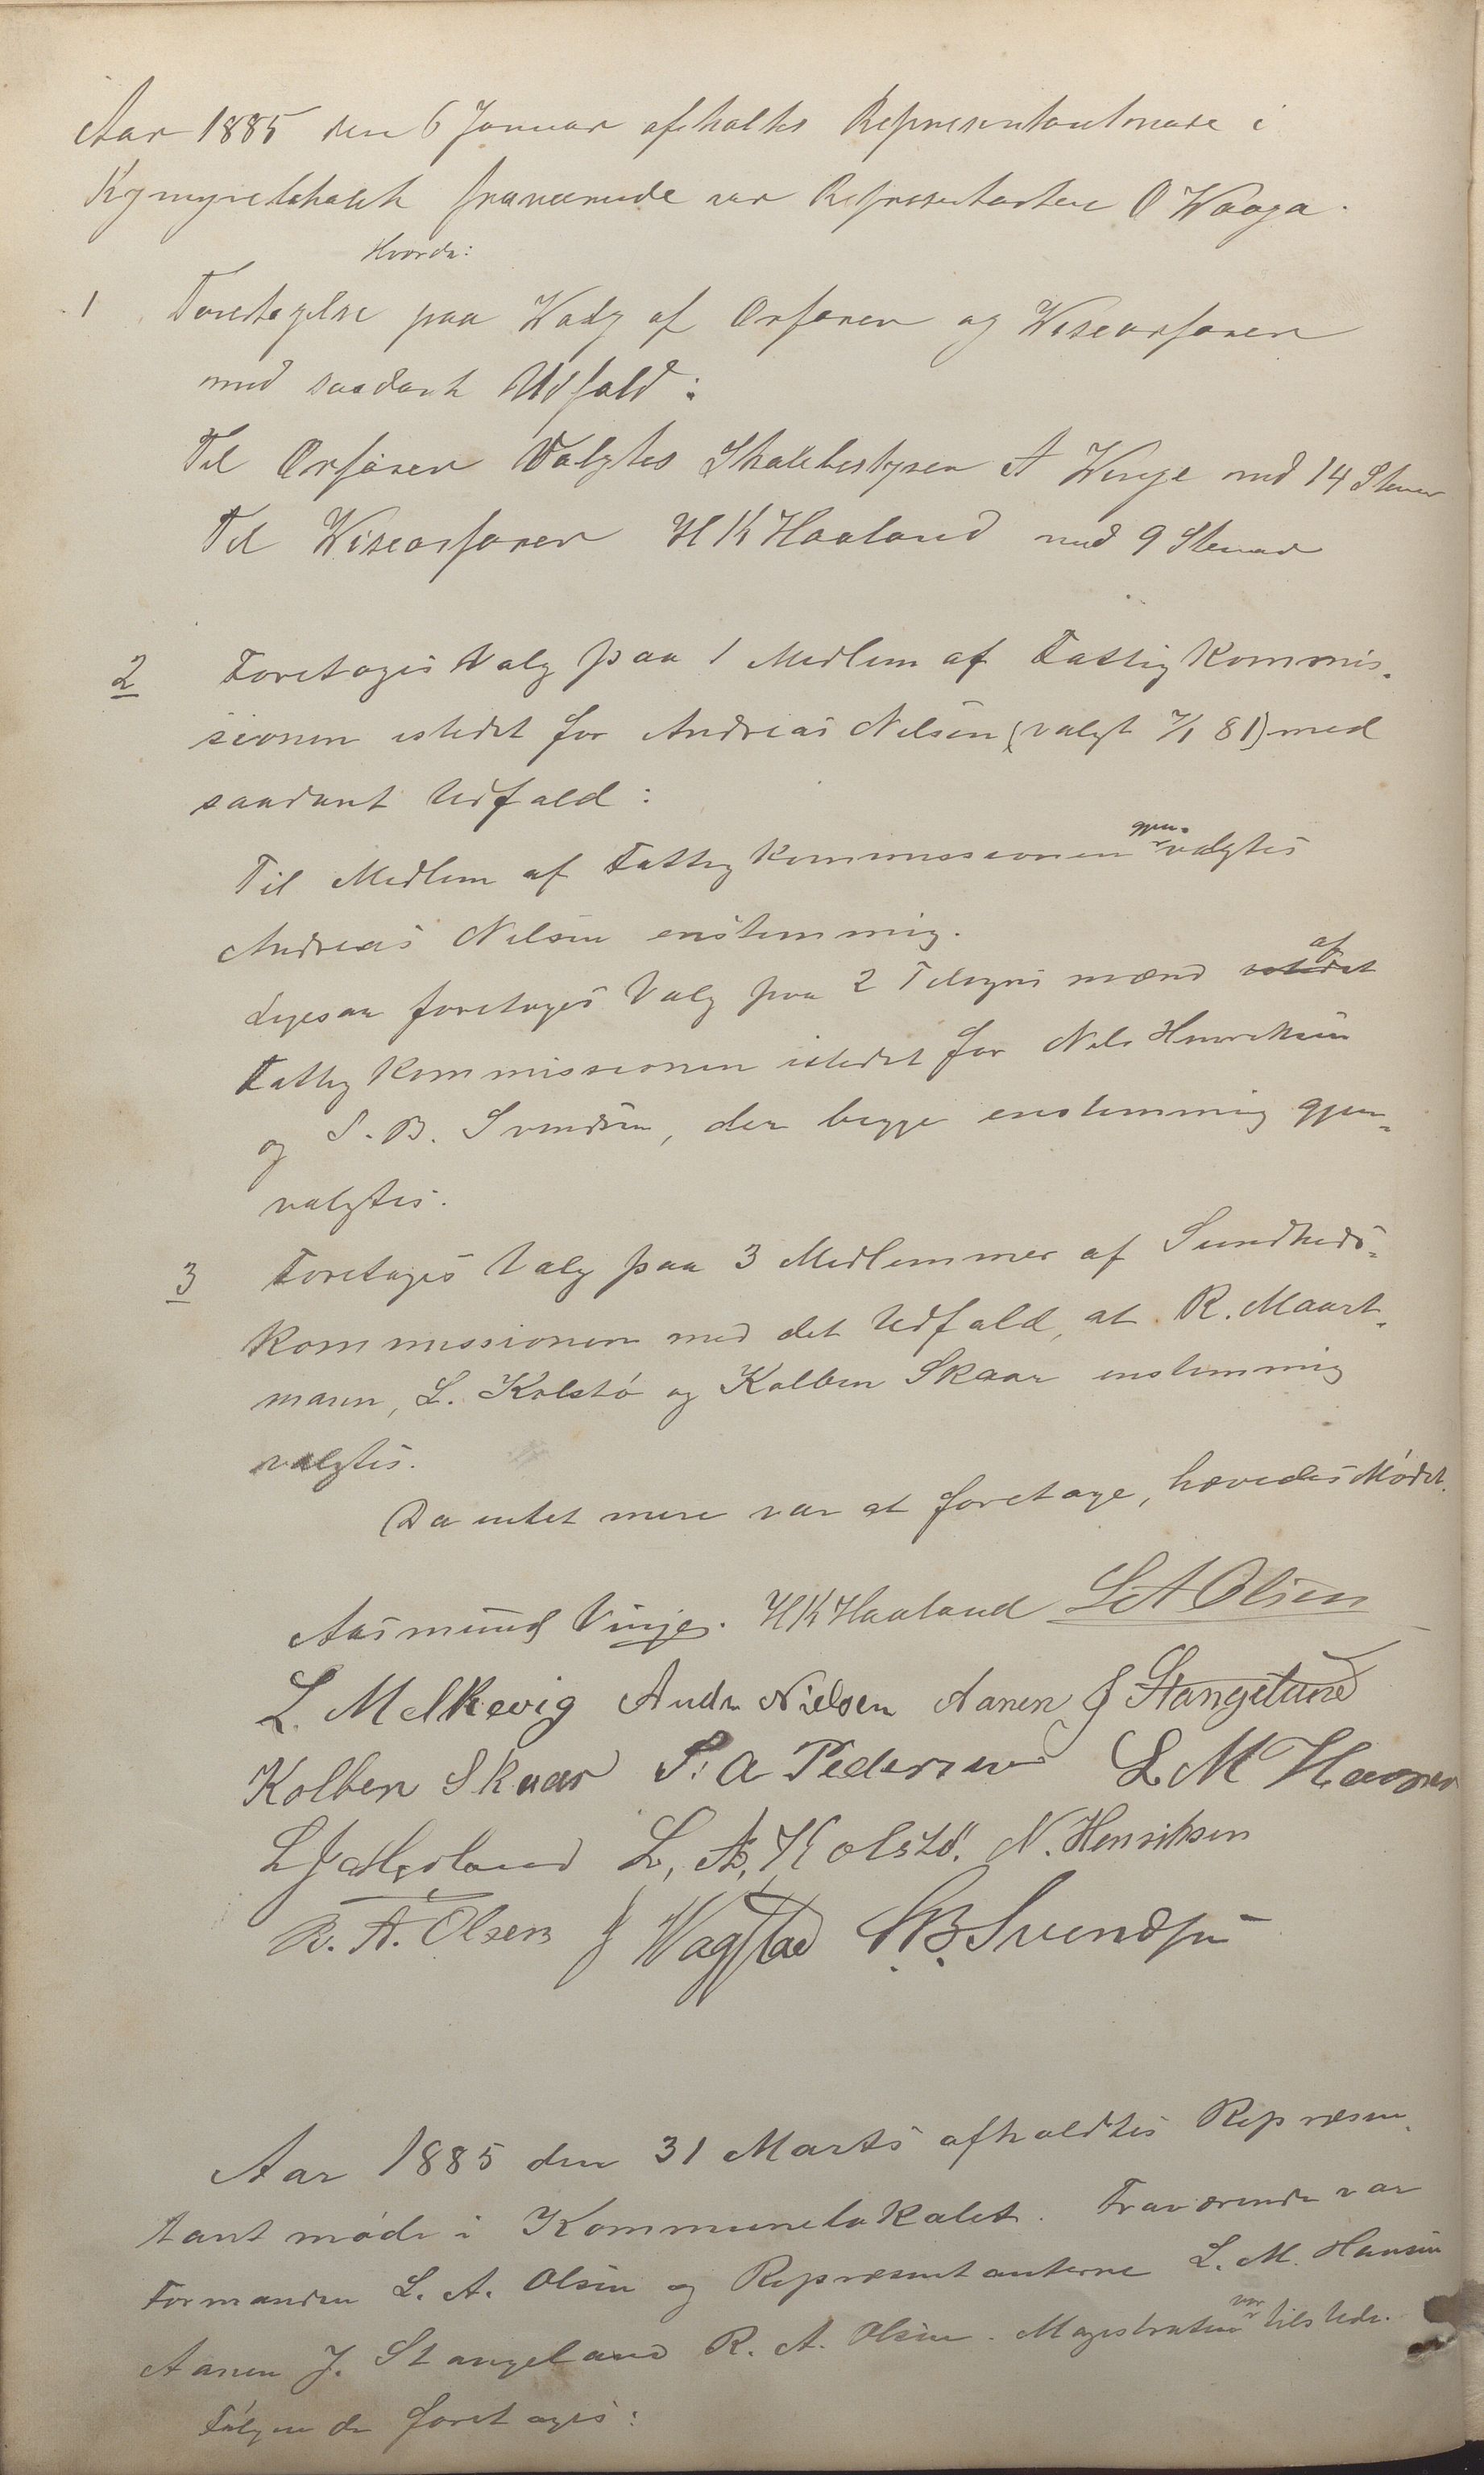 Aar 1885 den 6 Januar afholtes Representantmøde i
fraværende var Representantene O Waaga.
Hvorda:
1 Foretagelse paa Walg af Orføren og Wiseorføren
med saadant Udfald:
Til Orfører Valgtes Skolebestyrer A Winje med 14 Stemer
Til Wiseorfører H K Haaland med 9 Stemer
2 Foretoges Valg paa 1 Medlem af Fattig Kommis-
sionen istedet for Andreas Nilsen (valgt 7/1 81) med
saadant Udfald:
gjen-
Til Medlem af Fattig Kommissionen valgtes
Andreas Nilsen enstemmig.
af
Ligesaa foretoges Valg paa 2 Tilsyns mænd istedet
Fattig Kommissionen istedet for Nils Henriksen
og S. B. Svendsen, der begge enstemmig gjen-
valgtes.
3 Foretoges Valg paa 3 Medlemmer af Sundheds-
Kommissionen med det Udfald, at R. Maart-
mann, L. Kolstø og Kolben Skaar enstemmig
valgtes.
Da intet mere var at foretage, hævedes Mødet.
Aasmund Vinje. H K Haaland L A Olsen
L. Melkevig Andr Nielsen Aanen J Stangeland
Kolben Skaar P. A Pedersen L M Hansen
L J Medland L. A. Kolstö. N. Henriksen
R. A. Olsen J Vagstad S. B. Svendsen
Aar 1885 den 31 Marts afholdtes Repræsen-
tant møde i Kommunelokalet. Fraværende var
Formanden L. A. Olsen og Repræsentanterne L. M. Hansen
Aanen J. Stangeland R. A. Olsen. Magistraten var tilstede.
Følgende foretoges: